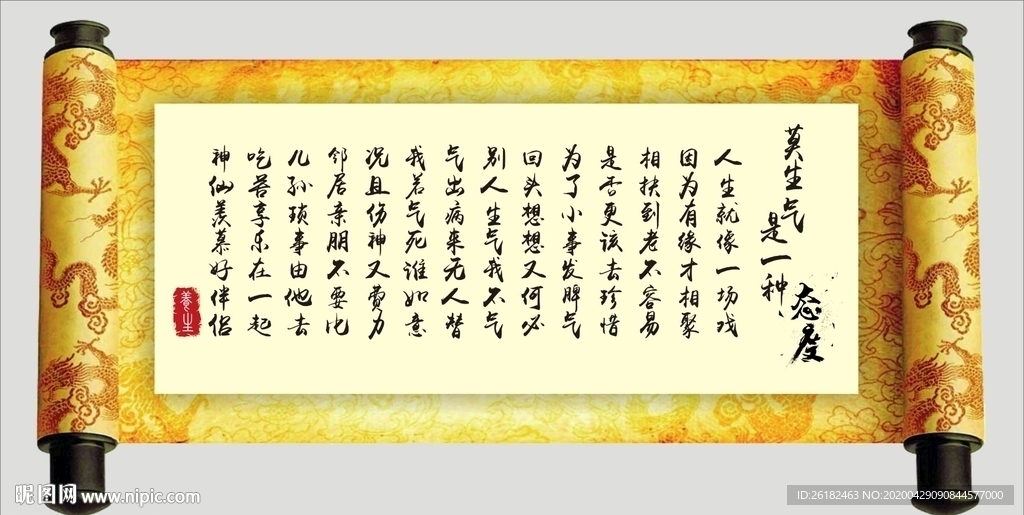 莫生气
是一种
态度
人生就像一场戏
因为有缘才相聚
相扶到老不容易
是否更该去珍惜
为了小事发脾气
回头想想又何必
别人生气我不气
气出病来无人替
我若气死谁如意
况且伤神又费力
邻居亲朋不要比
儿孙琐事由他去
吃苦享乐在一起
神仙羡慕好伴侣
養生
昵图网 www.nipic.com
ID:26182463 NO:20200429090844577000